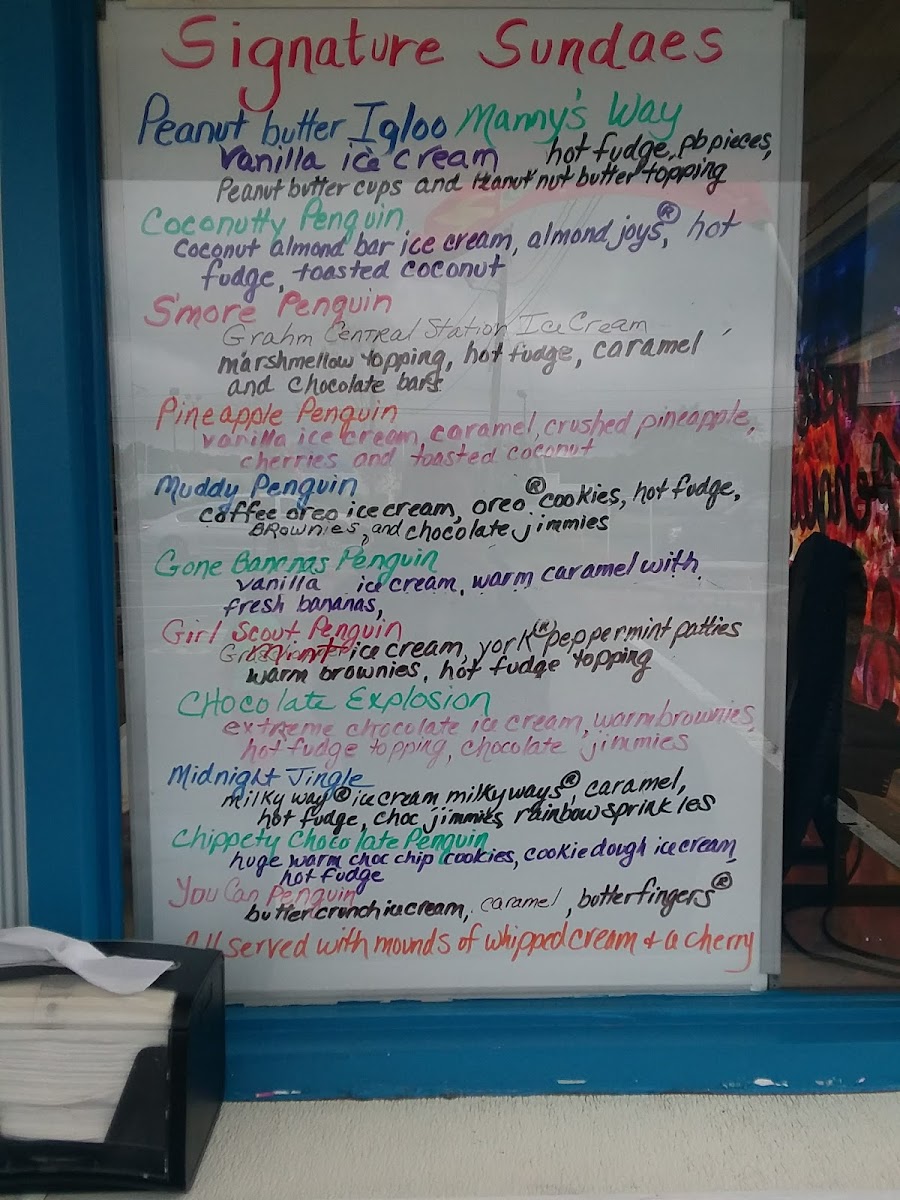 Signature Sundaes
Peanut butter Igloo Manny's Way
vanilla ice cream hot fudge, pb pieces,
Peanut butter cups and nut butter topping
Coconutty Penguin
coconut almond bar ice cream, almond joys®, hot
fudge, toasted coconut
S'more Penguin
Grahm Central Station Ice Cream
marshmellow topping, hot fudge, caramel
and chocolate bars
Pineapple Penguin
vanilla ice cream, caramel, crushed pineapple,
cherries and toasted coconut
Muddy Penguin
coffee oreo ice cream, oreo® cookies, hot fudge,
Brownies, and chocolate jimmies
Gone Bananas Penguin
vanilla ice cream, warm caramel with
fresh bananas,
Girl Scout Penguin
mint ice cream, york® peppermint patties
warm brownies, hot fudge topping
Chocolate Explosion
extreme chocolate ice cream, warm brownies,
hot fudge topping, chocolate jimmies
Midnight Jingle
milky way® ice cream milky ways®, caramel,
hot fudge, choc jimmies, rainbow sprinkles
Chippety Chocolate Penguin
huge warm choc chip cookies, cookie dough ice cream
hot fudge
You Can Penguin
buttercrunch ice cream, caramel, butterfingers®
All served with mounds of whipped cream & a cherry